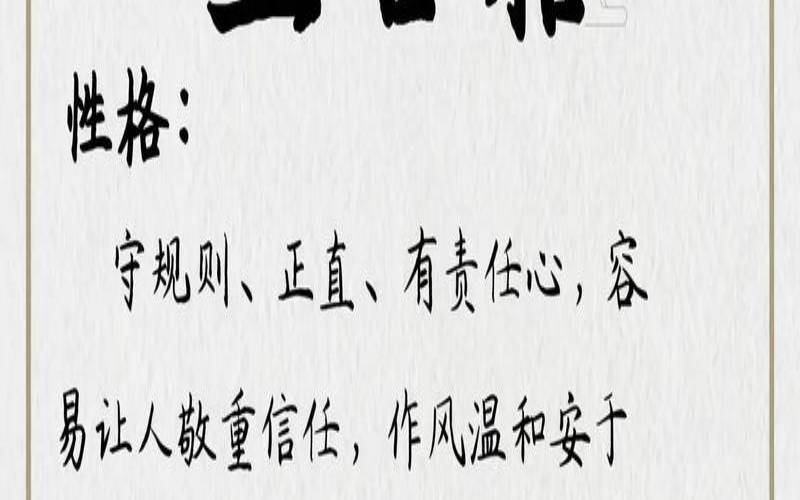 性格：
守规则、正直、有责任心，容
易让人敬重信任，作风温和安于